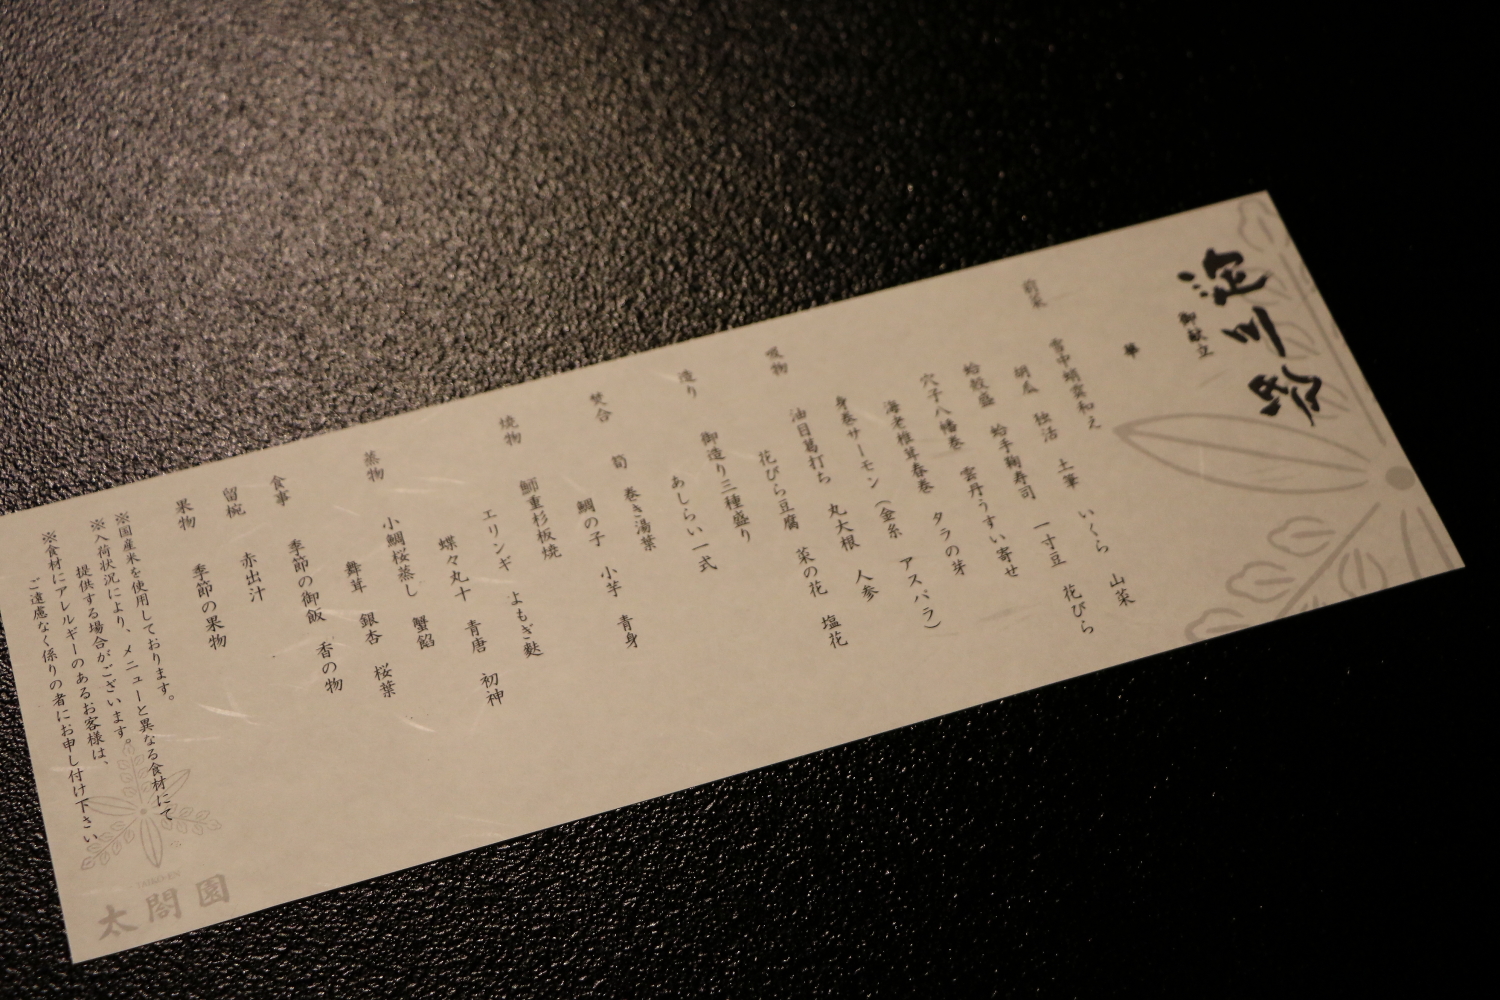 淀川邸
御献立
華
前菜
雪中蛸雲和え
胡瓜 独活 土筆 いくら 山菜
蛤殻盛 蛤手鞠寿司 一寸豆 花びら
穴子八幡巻 雲丹うすい寄せ
海老椎茸春巻 タラの芽
身巻サーモン（金糸 アスパラ）
吸物
油目葛打ち 丸大根 人参
花びら豆腐 菜の花 塩花
造り
御造り三種盛り
あしらい一式
焚合
筍 巻き湯葉
鯛の子 小芋 青身
焼物
鰤重杉板焼
エリンギ よもぎ麩
蝶々丸十 青唐 初神
蒸物
小鯛桜蒸し 蟹餡
舞茸 銀杏 桜葉
食事
季節の御飯 香の物
留椀
赤出汁
果物
季節の果物
※国産米を使用しております。
※入荷状況により、メニューと異なる食材にて
提供する場合がございます。
※食材にアレルギーのあるお客様は、
ご遠慮なく係りの者にお申し付け下さい
TAIKO-EN
太閤園